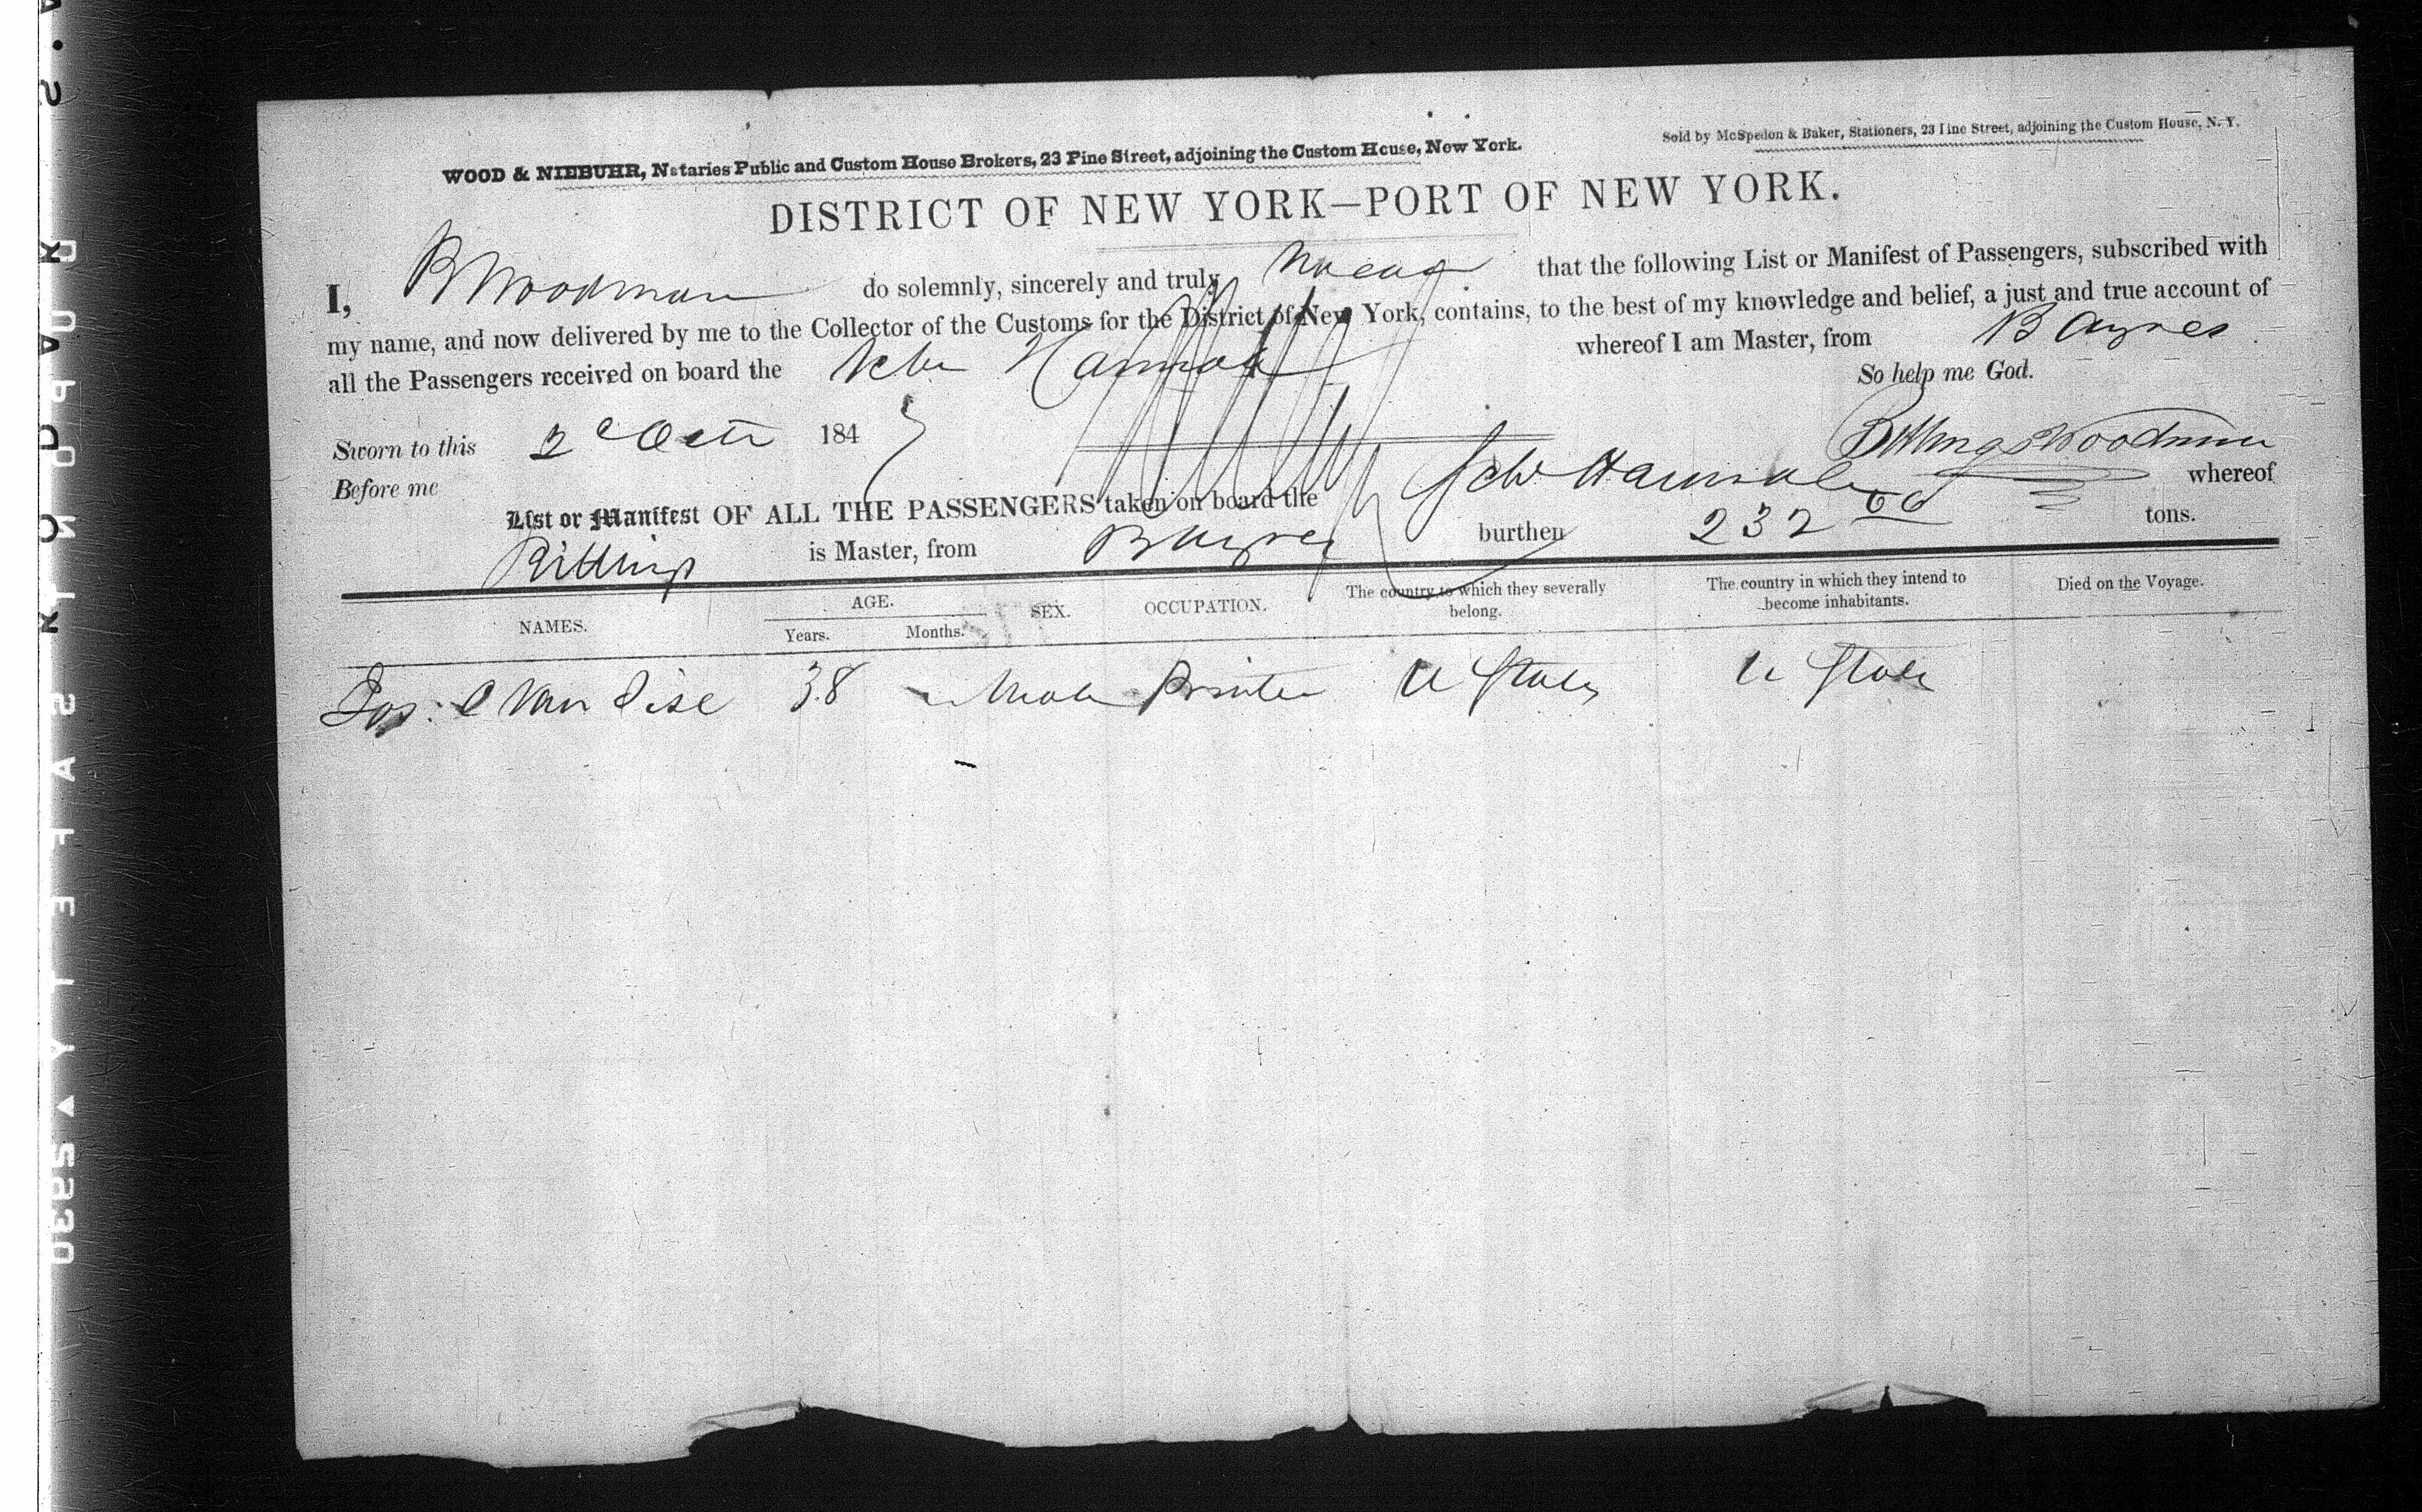 WOOD & NIEBUHR, Notaries Public and Custom House Brokers, 23 Pine Street, adjoining the Custom House, New York.
Sold by McSpedon & Baker, Stationers, 23 Pine Street, adjoining the Custom House, N. Y.
DISTRICT OF NEW YORK—PORT OF NEW YORK.
I, B Woodman do solemnly, sincerely and truly swear that the following List or Manifest of Passengers, subscribed with
my name, and now delivered by me to the Collector of the Customs for the District of New York, contains, to the best of my knowledge and belief, a just and true account of
all the Passengers received on board the Schr Hannah whereof I am Master, from B Ayres
So help me God.
Sworn to this 2 Oct 184
Before me
Woodman
List or Manifest OF ALL THE PASSENGERS taken on board the Schr whereof
is Master, from B Ayres burthen 232 tons.
NAMES. AGE. Years. Months. SEX. OCCUPATION. The country to which they severally belong. The country in which they intend to become inhabitants. Died on the Voyage.
C Van 38 Male Printer U States U States
SAFETY